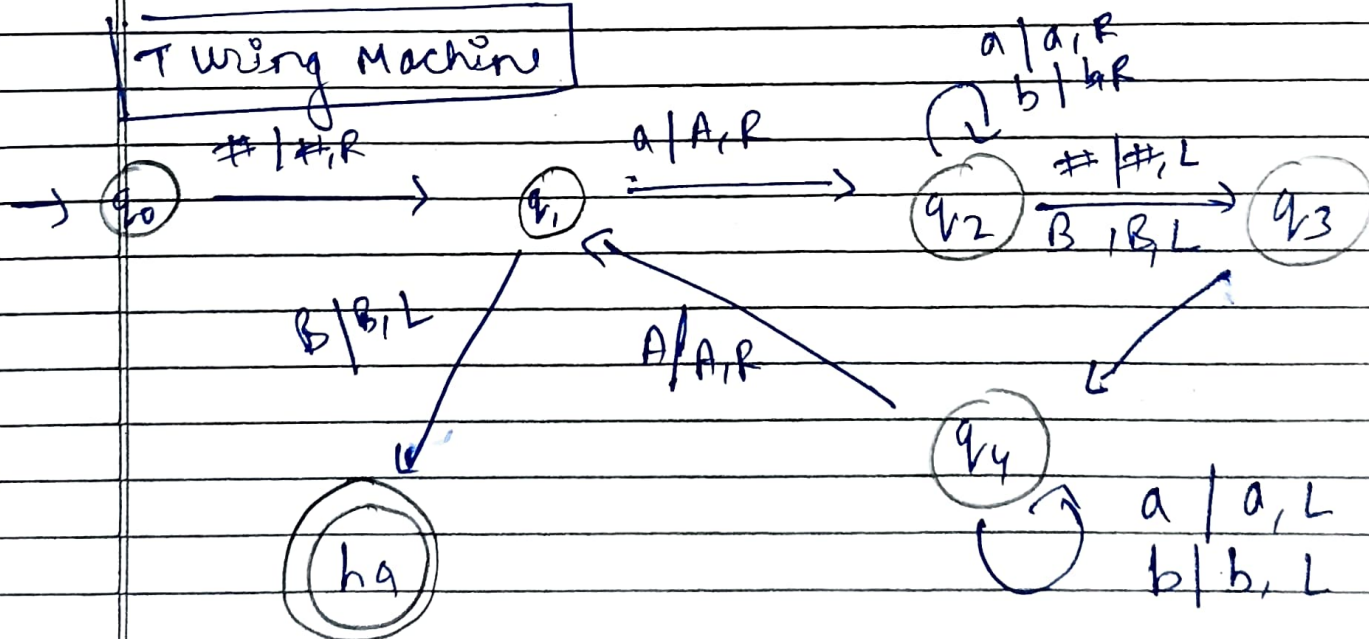 Turing Machine
a | a, R
b | b, R
# | #, R
a | A, R
# | #, L
q0
q1
q2
B , B, L
q3
B | B, L
A / A, R
q4
a | a, L
b | b, L
ha